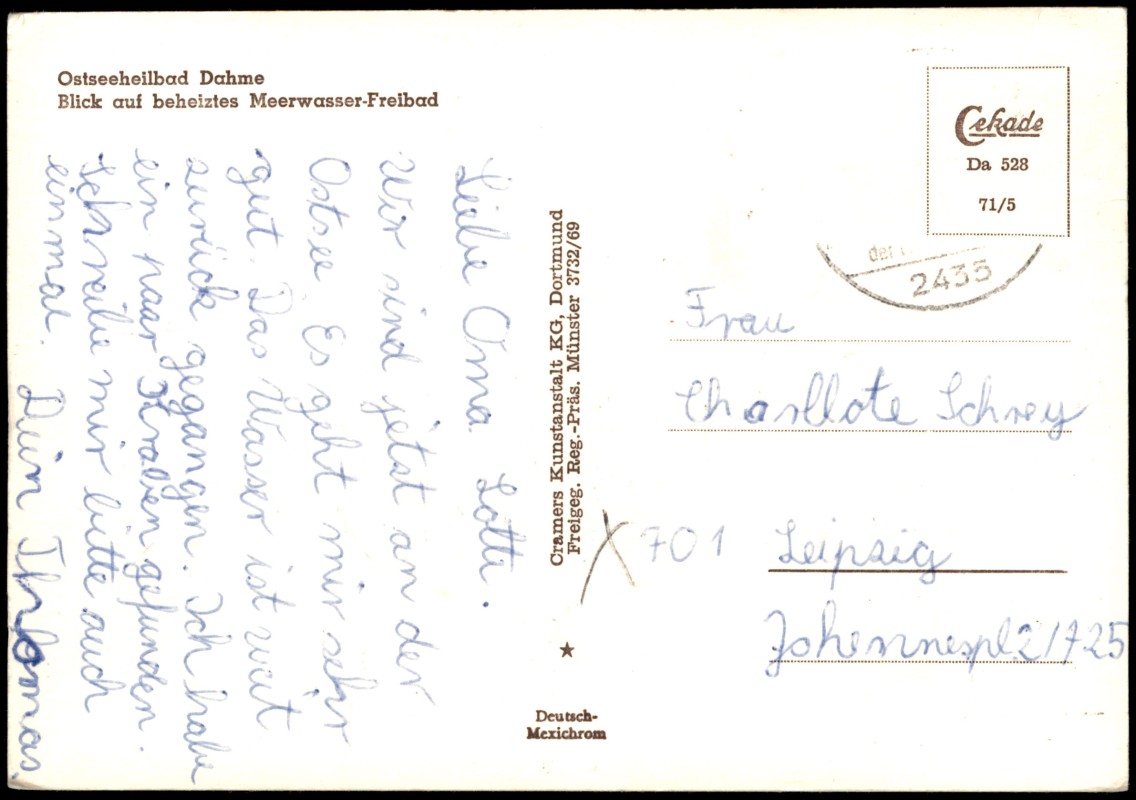 Ostseeheilbad Dahme
Blick auf beheiztes Meerwasser-Freibad
Liebe Oma Lotte.
Wir sind jetst an der
Ostsee Es geht mir sehr
gut. Das Wasser ist weit
zurück gegangen. Ich habe
ein paar Kraben gefunden.
Schreibe mir bitte auch
einmal.
Dein Thomas
Cramers Kunstanstalt KG, Dortmund
Freigeg. Reg.-Präs. Münster 3732/69
★
Deutsch-
Mexichrom
Cekade
Da 528
71/5
2435
Frau
Charllote Schrey
X 701 Leipzig
Johennespl.